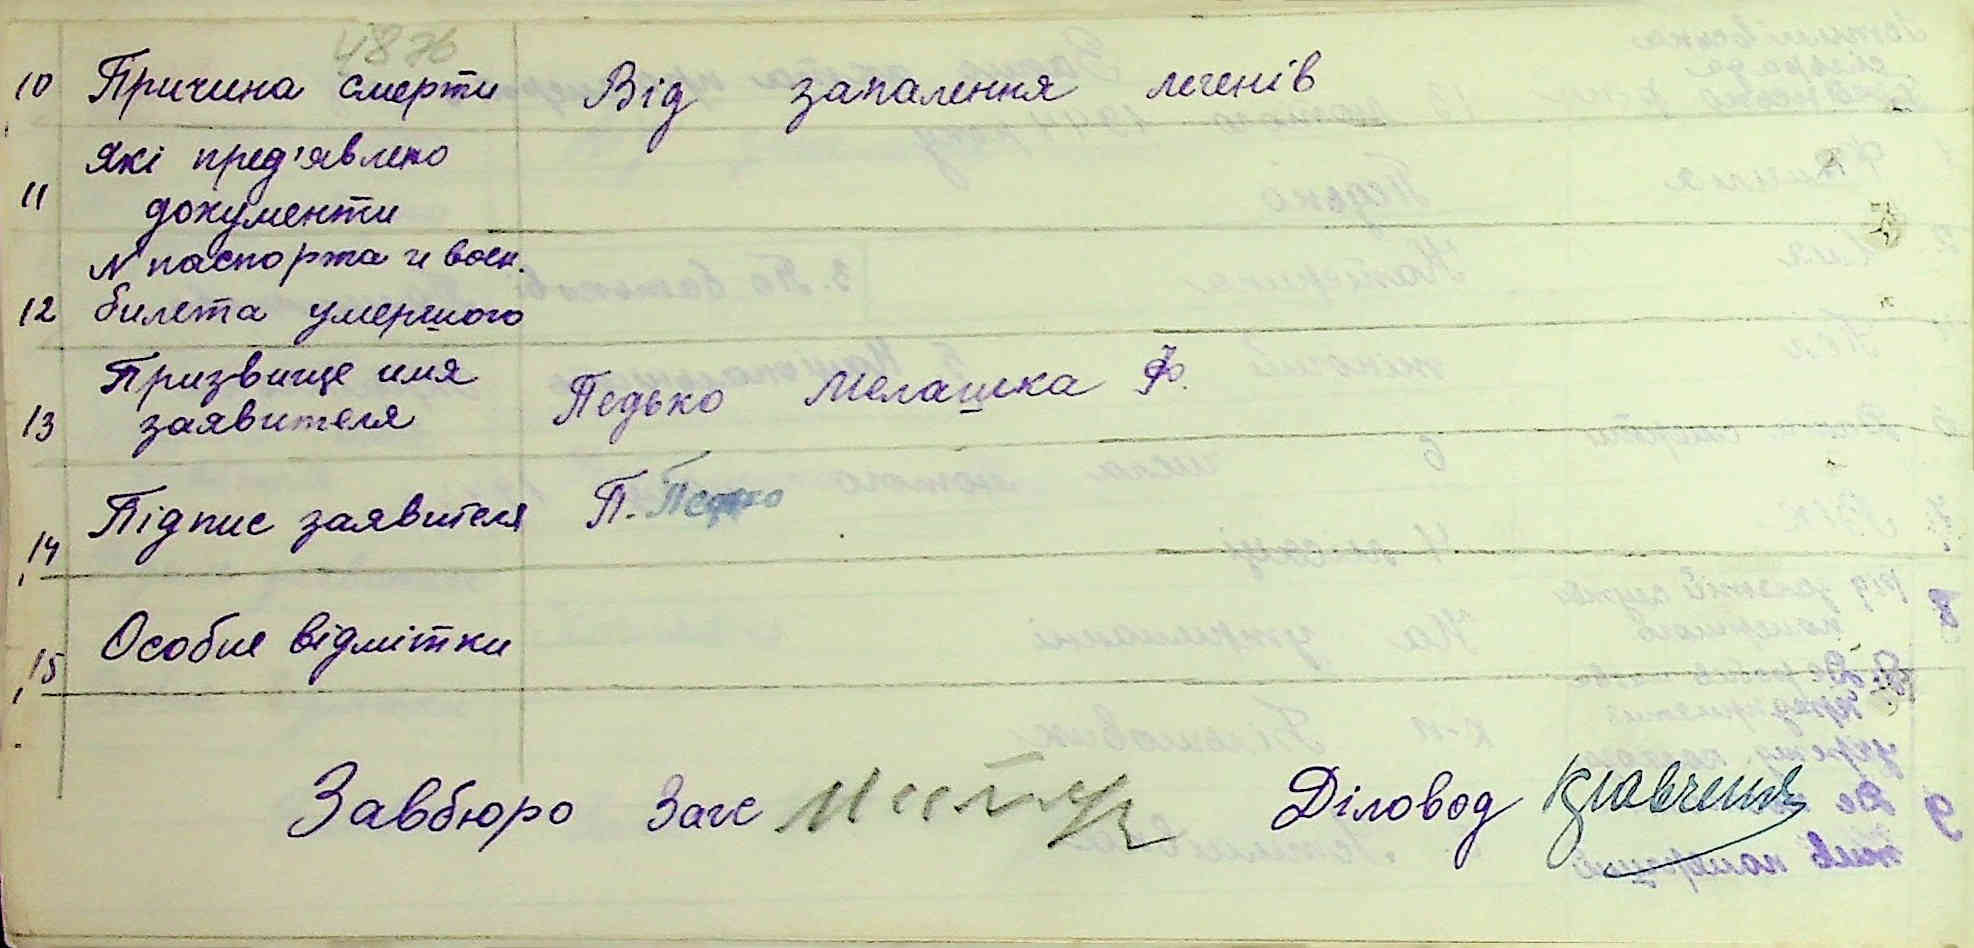 4876
10 Причина смерти Від запалення легенів
Які пред'явлено
11 документи
N паспорта и воен.
12 билета умершого
Призвище имя
13 заявителя Педько Мелашка Ф.
14 Підпис заявителя П. Педько
15 Особие відмітки
Завбюро Загс Діловод Кравченко